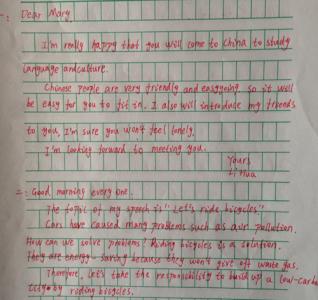 一: Dear Mary,
I'm really happy that you will come to China to study
language and culture.
Chinese people are very friendly and easygoing, so it will
be easy for you to fit in. I also will introduce my friends
to you, I'm sure you won't feel lonely.
I'm looking forward to meeting you.
Yours
Li Hua
二: Good morning every one.
The topic of my speech is "Let's ride bicycles"
Cars have caused many problems such as air pollution.
How can we solve problems? Riding bicycles is a solution.
They are energy-saving because they won't give off waste gas.
Therefore, let's take the responsibility to build up a low-carbon
city by riding bicycles.